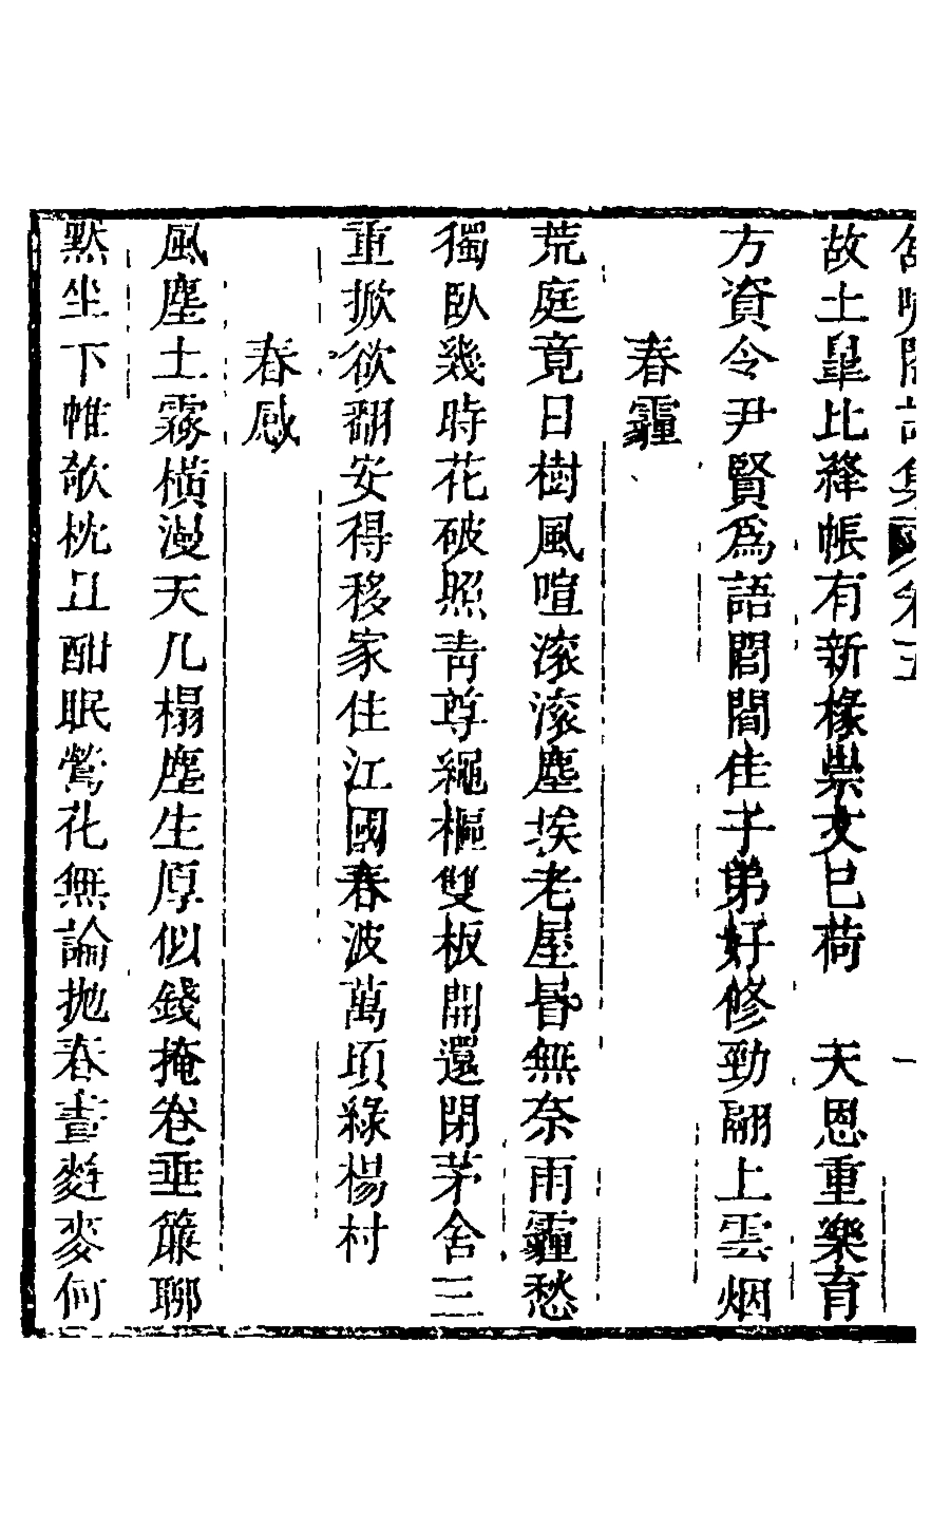 故土皐比絳帳有新椽崇文已荷　天恩重樂育
方資令尹賢爲語閭閻佳子弟好修勁翮上雲烟
春霾
荒庭竟日樹風喧滾滾塵埃老屋昏無奈雨霾愁
獨臥幾時花破照靑尊繩樞雙板開還閉茅舍三
重掀欲翻安得移家住江國春波萬頃綠楊村
春感
風塵土霧橫漫天几榻塵生厚似錢掩卷垂簾聊
默坐下帷欹枕且酣眠鶯花無論拋春晝麰麥何